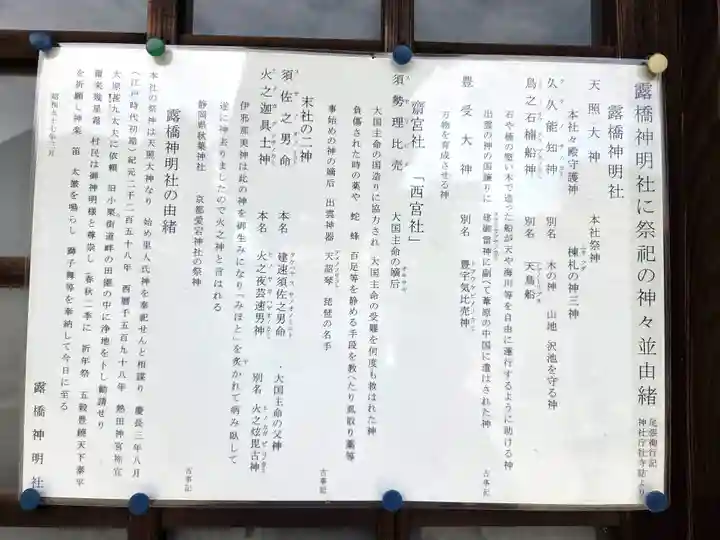 露橋神明社に祭祀の神々並由緒
尾張徇行記
神社庁社寺誌より
露橋神明社
天照大神 本社祭神
本社々殿守護神 棟札の神三神
久久能知神 別名 木の神 山地 沢池を守る神
鳥之石楠船神 別名 天鳥船
石や楠の堅い木で造った船が天や海川等を自由に運行するように助ける神
出雲の神の国譲りに 建御雷神に副へて葦原の中国に遣はされた神 古事記
豊受大神 別名 豊宇気比売神
万物を育成させる神
齋宮社 「西宮社」
須勢理比売 大国主命の嫡后
大国主命の国造りに協力され 大国主命の受難を何度も救はれた神
負傷された時の薬や 蛇 蜂 百足等を静める手段を教へたり鼠取り薬等
事始めの神の嫡后 出雲神器 天詔琴 琵琶の名手 古事記
末社の二神
須佐之男命 本名 建速須佐之男命 ・大国主命の父神
火之迦具土神 本名 火之夜芸速男神 別名 火之炫毘古神
伊邪那美神は此の神を御生みになり『みほと』を炙かれて病み臥して
遂に神去りましたので火之神と言はれる 古事記
静岡県秋葉神社 京都愛宕神社の祭神
露橋神明社の由緒
本社の祭神は天照大神なり 始め里人氏神を奉祀せんと相謀り 慶長三年八月
(江戸時代初期)紀元二千二百五十八年 西暦千五百九十八年 熱田神宮祢宜
大原孫九太夫に依頼 旧小栗街道畔の田圃の中に浄地を卜し勧請せり
爾来幾星霜 村民は御神明様と尊崇し(春秋二季に 祈年祭 五穀豊饒天下泰平
を祈願し神楽 笛 太鼓を鳴らし 獅子舞等を奉納して今日に至る
昭和五十七年三月
露橋神明社